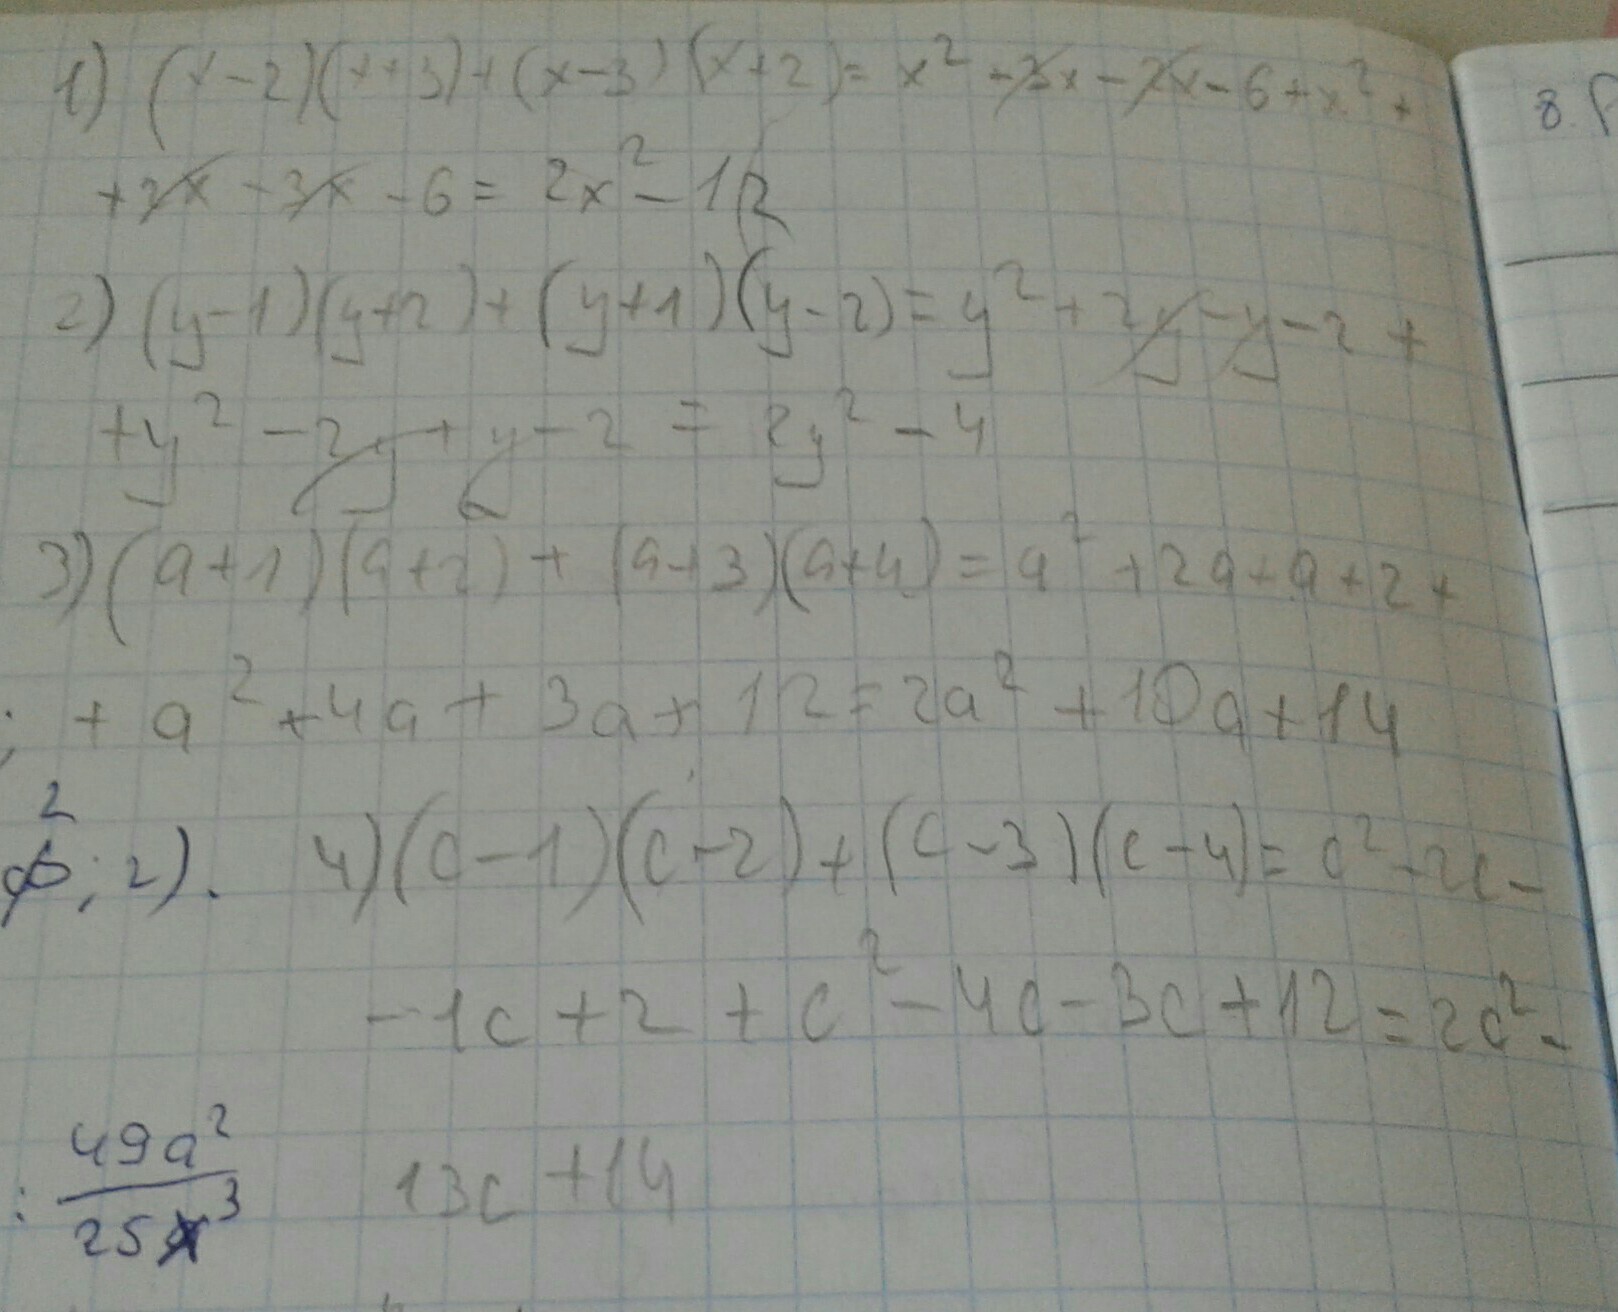 1) (x-2)(x+3)+(x-3)(x+2)= x² +3x-2x-6+x²+
+2x-3x-6= 2x²-12
2) (y-1)(y+2)+(y+1)(y-2)=y²+2y-y-2+
+y²-2y+y-2 = 2y²-4
3) (a+1)(a+2)+(a+3)(a+4)=a²+2a+a+2+
+a²+4a+3a+12=2a²+10a+14
4)(c-1)(c-2)+(c-3)(c-4)=c²-2c-
-1c+2+c²-4c-3c+12=2c²-
13c+14
2
; 2).
: 49a²
25x³
8.